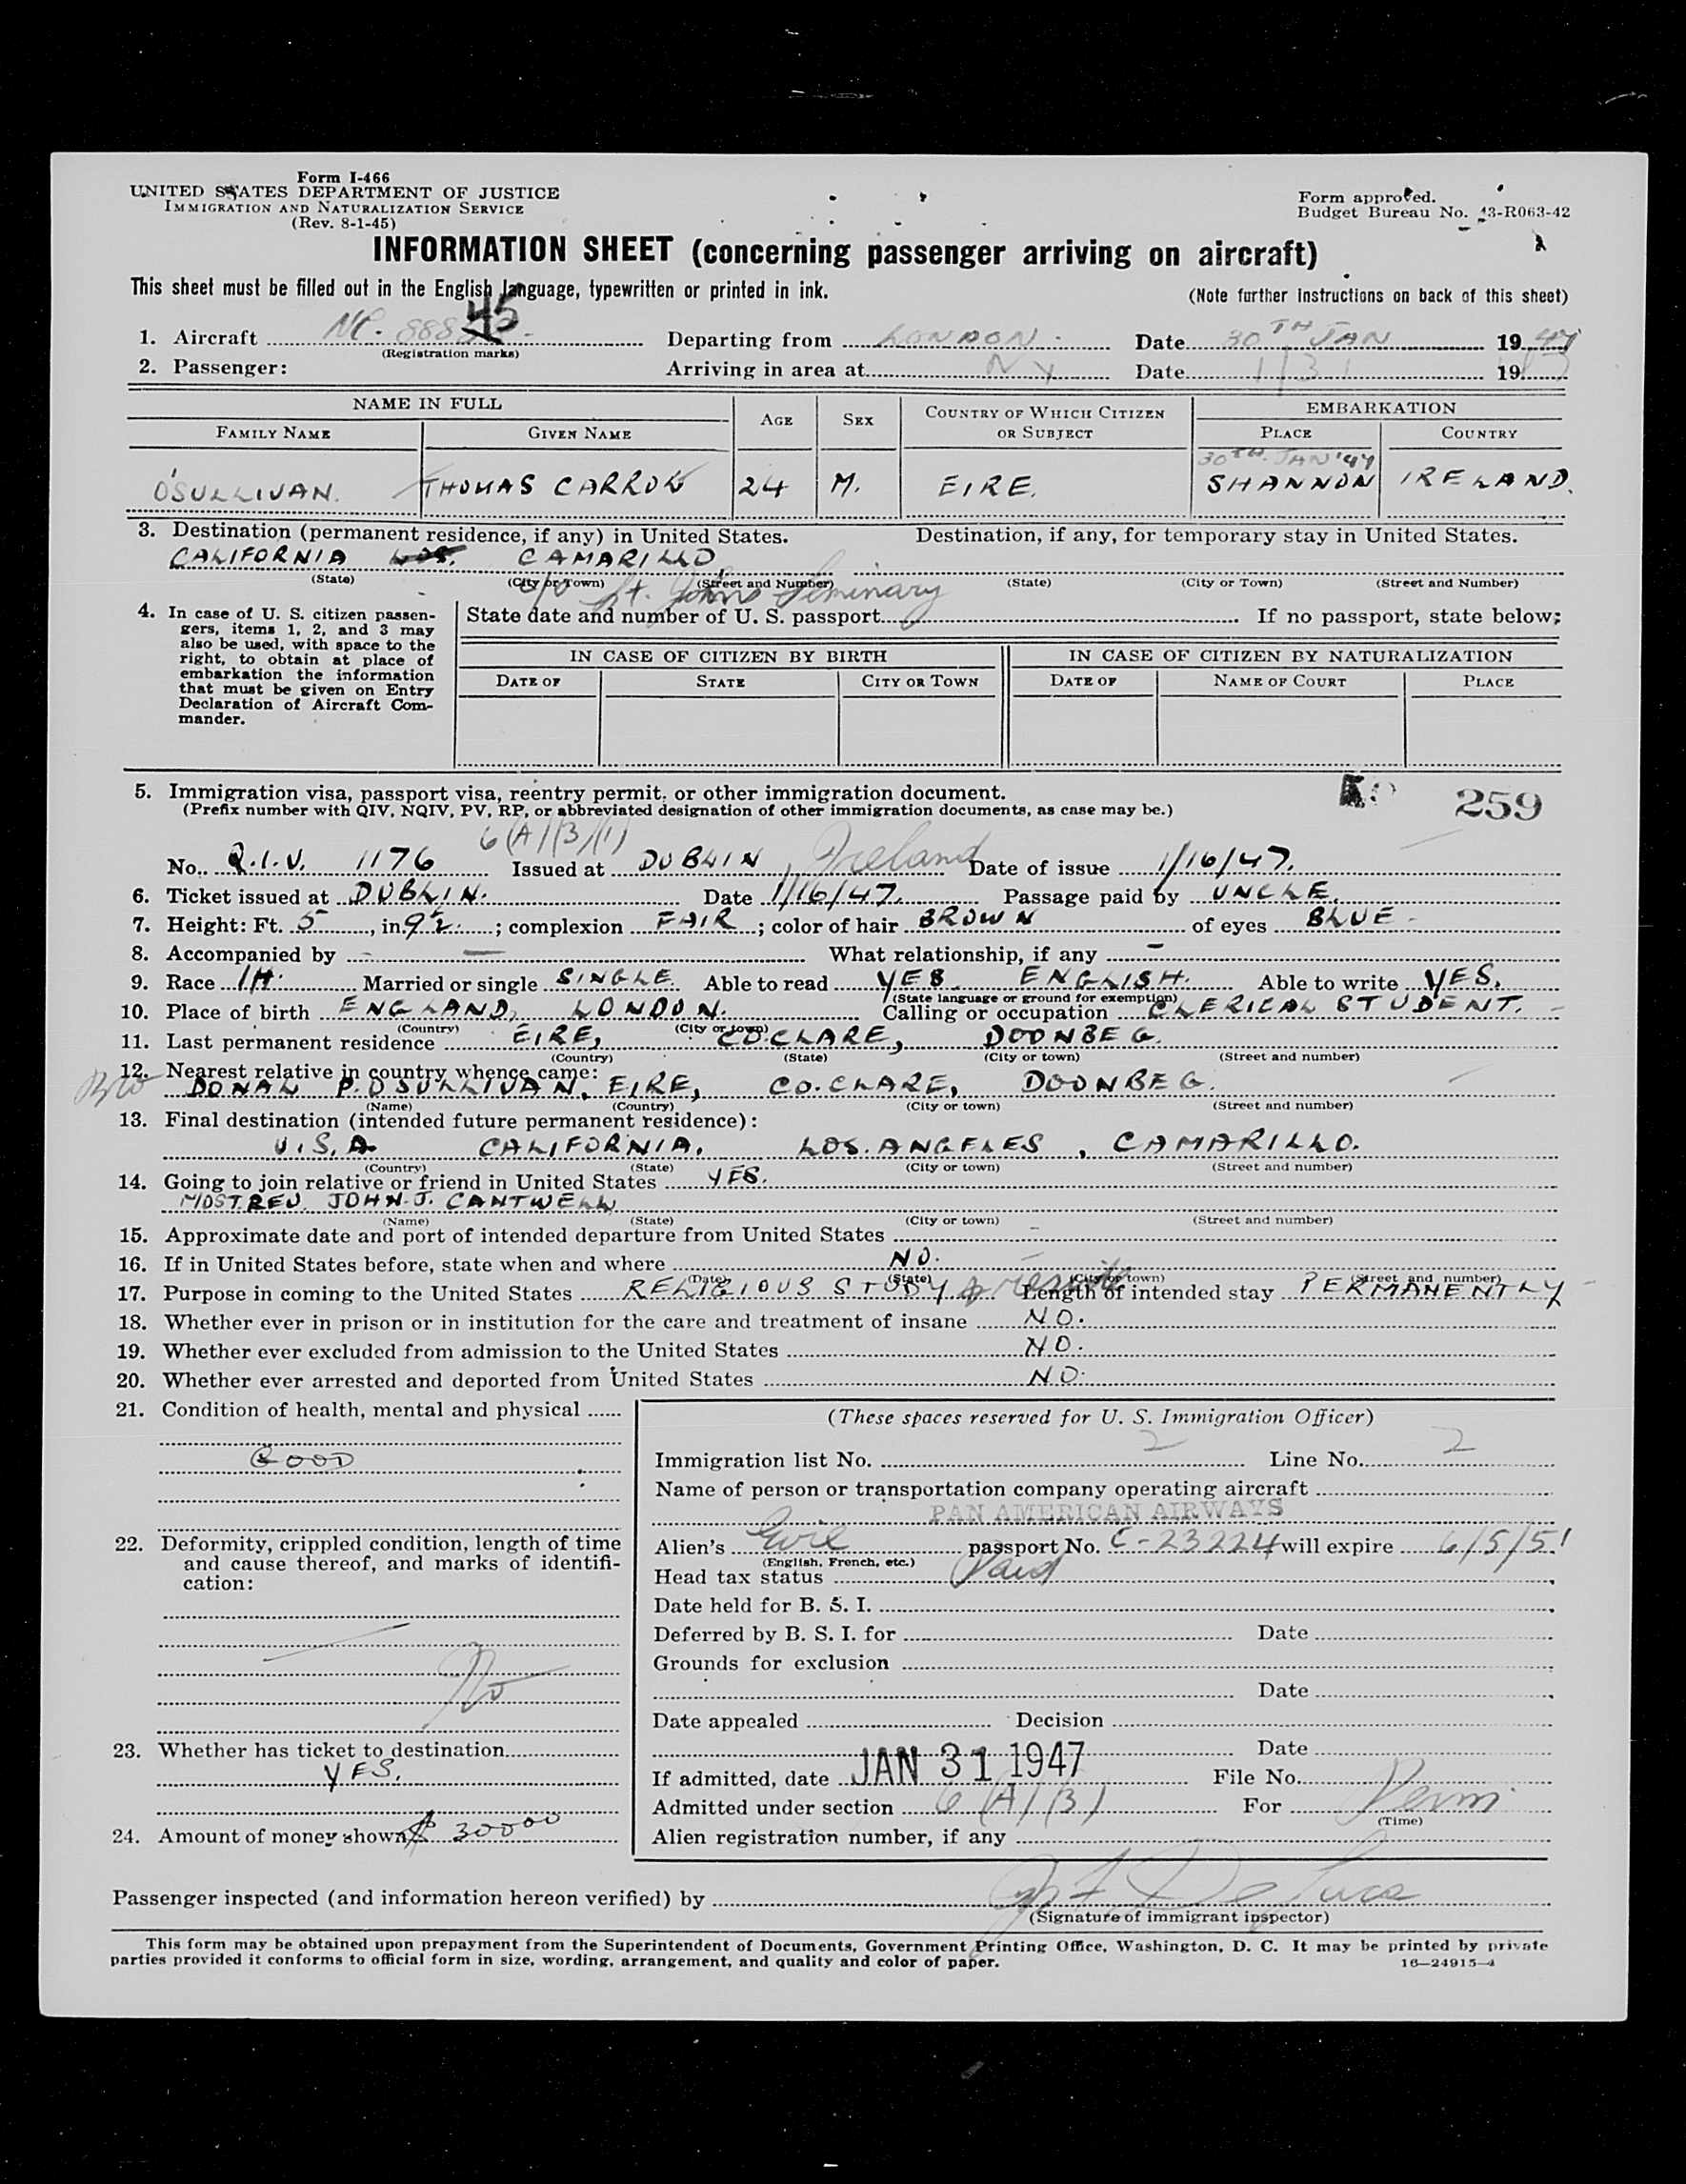 Form I-466
UNITED STATES DEPARTMENT OF JUSTICE
IMMIGRATION AND NATURALIZATION SERVICE
(Rev. 8-1-45)
Form approved.
Budget Bureau No. 43-R063-42
INFORMATION SHEET (concerning passenger arriving on aircraft)
This sheet must be filled out in the English language, typewritten or printed in ink.
(Note further instructions on back of this sheet)
1. Aircraft NC. 888 45 Departing from LONDON Date 30TH JAN 1947
(Registration marks)
2. Passenger: Arriving in area at NY Date 1/31 1947
NAME IN FULL AGE SEX COUNTRY OF WHICH CITIZEN OR SUBJECT EMBARKATION
FAMILY NAME GIVEN NAME PLACE COUNTRY
30TH JAN '47
O'SULLIVAN. THOMAS CARROW 24 M. EIRE. SHANNON IRELAND.
3. Destination (permanent residence, if any) in United States. Destination, if any, for temporary stay in United States.
CALIFORNIA LOS. CAMARILLO,
(State) (City or Town) (Street and Number) (State) (City or Town) (Street and Number)
c/o St. Johns Seminary
4. In case of U. S. citizen passengers, items 1, 2, and 3 may also be used, with space to the right, to obtain at place of embarkation the information that must be given on Entry Declaration of Aircraft Commander.
State date and number of U. S. passport If no passport, state below:
IN CASE OF CITIZEN BY BIRTH IN CASE OF CITIZEN BY NATURALIZATION
DATE OF STATE CITY OR TOWN DATE OF NAME OF COURT PLACE
5. Immigration visa, passport visa, reentry permit, or other immigration document.
(Prefix number with QIV, NQIV, PV, RP, or abbreviated designation of other immigration documents, as case may be.)
259
6(A)(3)(1)
No. Q.I.V. 1176 Issued at DUBLIN, Ireland Date of issue 1/16/47.
6. Ticket issued at DUBLIN. Date 1/16/47. Passage paid by UNCLE.
7. Height: Ft. 5, in. 9½; complexion FAIR; color of hair BROWN of eyes BLUE
8. Accompanied by — What relationship, if any —
9. Race IH. Married or single SINGLE Able to read YES ENGLISH. Able to write YES.
(State language or ground for exemption)
10. Place of birth ENGLAND, LONDON. Calling or occupation CLERICAL STUDENT.
(Country) (City or town)
11. Last permanent residence EIRE, CO. CLARE, DOONBEG.
(Country) (State) (City or town) (Street and number)
12. Nearest relative in country whence came:
Bro DONAL P. O'SULLIVAN, EIRE, CO. CLARE, DOONBEG.
(Name) (Country) (City or town) (Street and number)
13. Final destination (intended future permanent residence):
U.S.A CALIFORNIA. LOS. ANGELES, CAMARILLO.
(Country) (State) (City or town) (Street and number)
14. Going to join relative or friend in United States YES.
MOST. REV. JOHN. J. CANTWELL
(Name) (State) (City or town) (Street and number)
15. Approximate date and port of intended departure from United States —
16. If in United States before, state when and where NO.
(Date) (State) (City or town) (Street and number)
17. Purpose in coming to the United States RELIGIOUS STUDY & reside Length of intended stay PERMANENTLY
18. Whether ever in prison or in institution for the care and treatment of insane NO.
19. Whether ever excluded from admission to the United States NO.
20. Whether ever arrested and deported from United States NO.
21. Condition of health, mental and physical
GOOD
22. Deformity, crippled condition, length of time and cause thereof, and marks of identification:
No
23. Whether has ticket to destination
YES.
24. Amount of money shown $ 300 00
(These spaces reserved for U. S. Immigration Officer)
Immigration list No. 2 Line No. 2
Name of person or transportation company operating aircraft
PAN AMERICAN AIRWAYS
Alien's Eire passport No. C-23224 will expire 6/5/51
(English, French, etc.)
Head tax status Paid
Date held for B. S. I.
Deferred by B. S. I. for Date
Grounds for exclusion
Date
Date appealed Decision
Date
If admitted, date JAN 31 1947 File No.
Admitted under section 6(A)(3) For Perm
(Time)
Alien registration number, if any
Passenger inspected (and information hereon verified) by De Luca
(Signature of immigrant inspector)
This form may be obtained upon prepayment from the Superintendent of Documents, Government Printing Office, Washington, D. C. It may be printed by private
parties provided it conforms to official form in size, wording, arrangement, and quality and color of paper.
16—24915-4